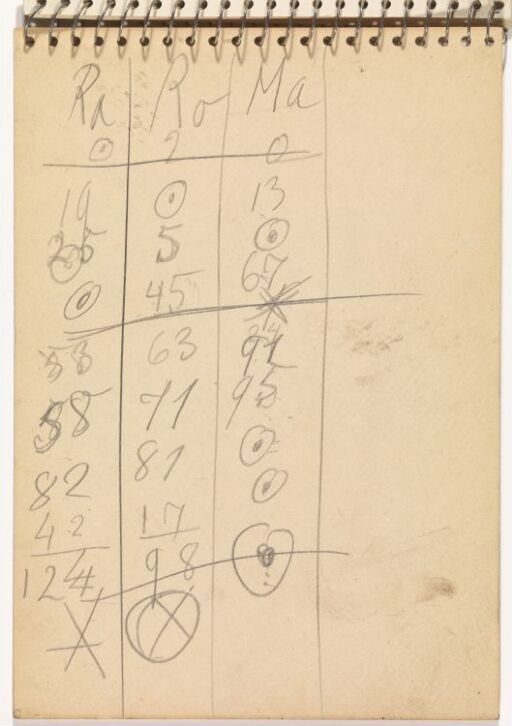 Ra Ro Ma
0 2 0
19 0 13
25 5 0
0 45 67
58 63
58 71 95
82 81 0
0
42 17
124 98 0
X X